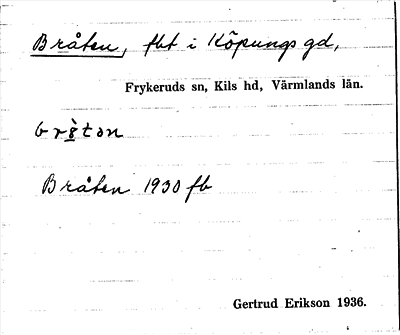 Bråten, fbt i Köpungs gd,
Frykeruds sn, Kils hd, Värmlands län.
Bråten 1930 fb
Gertrud Erikson 1936.